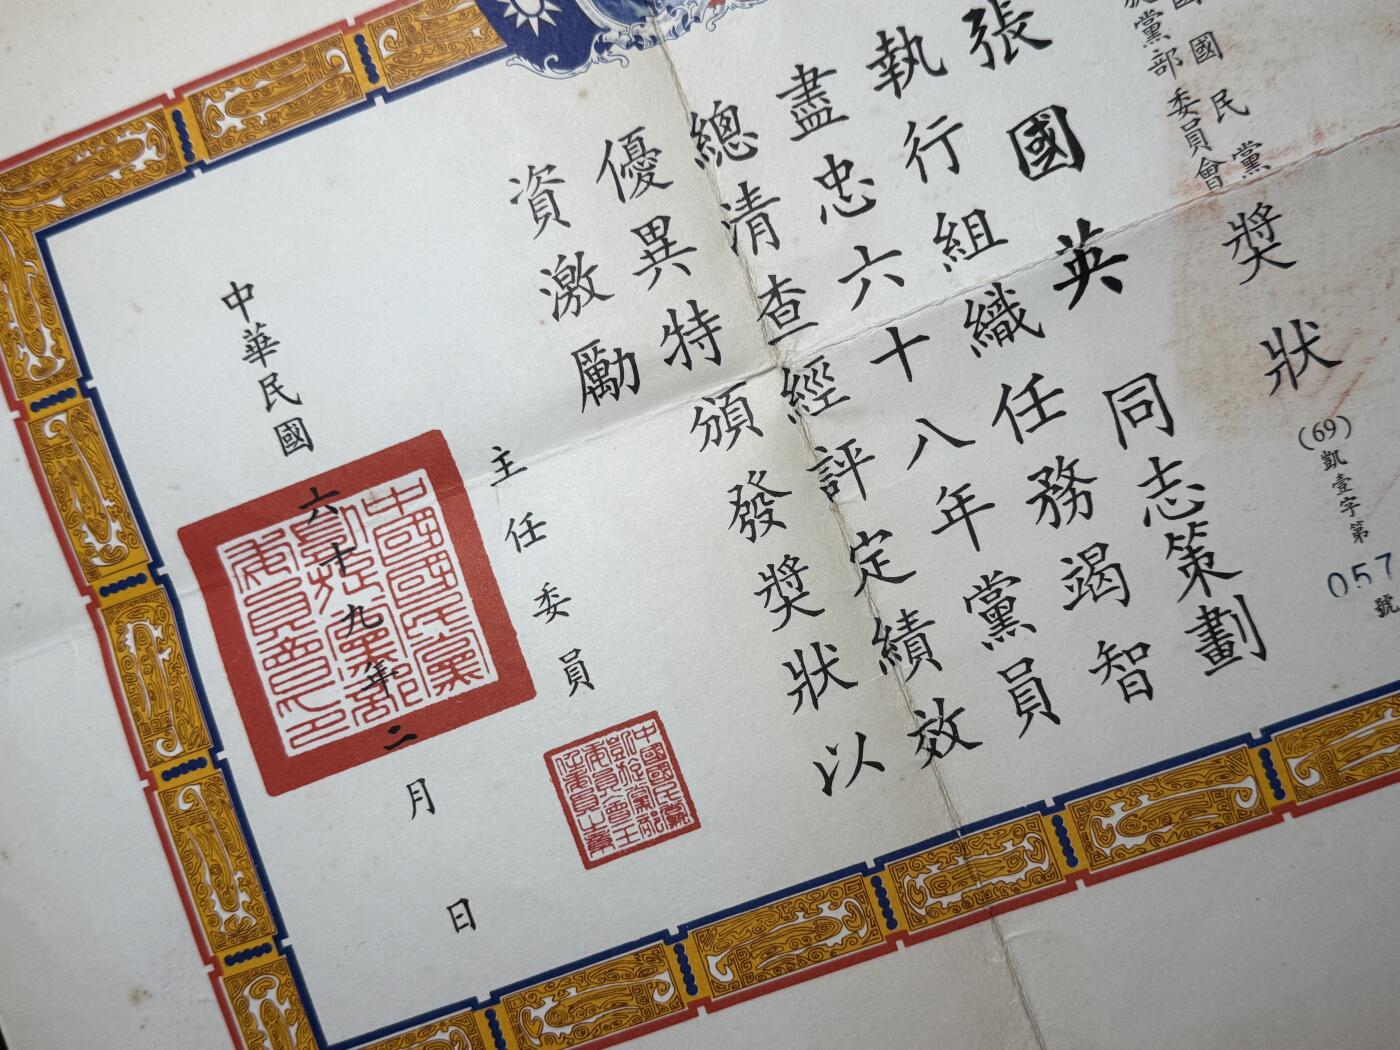 (69)凱壹字第057號
國國民黨
黨部委員會
獎狀
張國英同志策劃
執行組織任務竭智
盡忠六十八年黨員
總清查經評定績效
優異特頒發獎狀以
資激勵
主任委員
中國國民黨凱旋黨部委員會主任委員之章
中華民國六十九年二月 日
中國國民黨凱旋黨部委員會之印